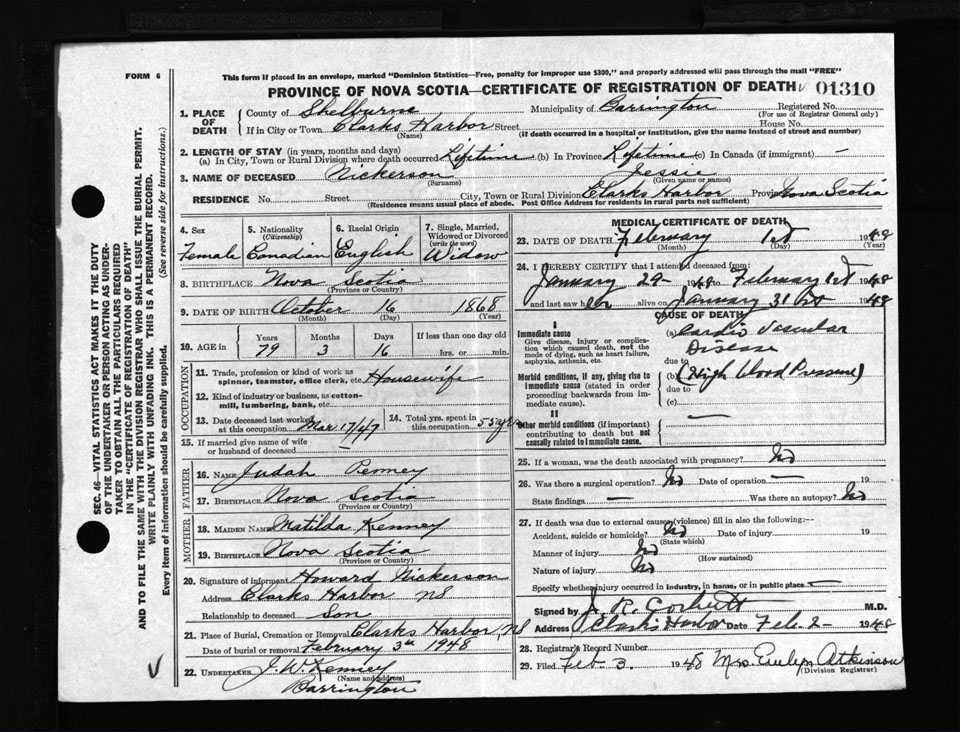 FORM 6
This form if placed in an envelope, marked "Dominion Statistics—Free, penalty for improper use $300," and properly addressed will pass through the mail "FREE"
PROVINCE OF NOVA SCOTIA—CERTIFICATE OF REGISTRATION OF DEATH 01310
1. PLACE OF DEATH County of Shelburne Municipality of Barrington Registered No.
(For use of Registrar General only)
If in City or Town Clarks Harbor Street House No.
(Name) (If death occurred in a hospital or institution, give the name instead of street and number)
2. LENGTH OF STAY (in years, months and days)
(a) In City, Town or Rural Division where death occurred Lifetime (b) In Province Lifetime (c) In Canada (if immigrant) —
3. NAME OF DECEASED Nickerson Jessie
(Surname) (Given name or names)
RESIDENCE No. Street City, Town or Rural Division Clarks Harbor Province Nova Scotia
(Residence means usual place of abode. Post Office Address for residents in rural parts not sufficient)
4. Sex Female
5. Nationality (Citizenship) Canadian
6. Racial Origin English
7. Single, Married, Widowed or Divorced (write the word) Widow
8. BIRTHPLACE Nova Scotia
(Province or Country)
9. DATE OF BIRTH October 16 1868
(Month) (Day) (Year)
10. AGE in Years Months Days If less than one day old
79 3 16 hrs. or min.
OCCUPATION
11. Trade, profession or kind of work as spinner, teamster, office clerk, etc. Housewife
12. Kind of industry or business, as cotton-mill, lumbering, bank, etc.
13. Date deceased last worked at this occupation Mar 17/47
14. Total yrs. spent in this occupation 55 yrs
15. If married give name of wife or husband of deceased —
FATHER
16. NAME Judah Penney
17. BIRTHPLACE Nova Scotia
(Province or Country)
MOTHER
18. MAIDEN NAME Matilda Kenney
19. BIRTHPLACE Nova Scotia
(Province or Country)
20. Signature of informant Howard Nickerson
Address Clarks Harbor NS
Relationship to deceased Son
21. Place of Burial, Cremation or Removal Clarks Harbor, NS
Date of burial or removal February 3rd 1948
22. UNDERTAKER J. W. Kenney
(Name and address)
Barrington
MEDICAL CERTIFICATE OF DEATH
23. DATE OF DEATH February 1st 1948
(Month) (Day) (Year)
24. I HEREBY CERTIFY that I attended deceased from:
January 29 1948 to February 1st 1948
and last saw her alive on January 31st 1948
CAUSE OF DEATH
I
Immediate cause
Give disease, injury or complication which caused death, not the mode of dying, such as heart failure, asphyxia, asthenia, etc.
(a) Cardio Vascular
Disease
due to
Morbid conditions, if any, giving rise to immediate cause (stated in order proceeding backwards from immediate cause).
(b) (High blood Pressure)
due to
(c)
II
Other morbid conditions (if important) contributing to death but not causally related to immediate cause. —
25. If a woman, was the death associated with pregnancy? No
26. Was there a surgical operation? No Date of operation — 19
State findings — Was there an autopsy? No
27. If death was due to external causes (violence) fill in also the following:--
Accident, suicide or homicide? No Date of injury 19
(State which)
Manner of injury No
(How sustained)
Nature of injury No
Specify whether injury occurred in industry, in home, or in public place —
Signed by J. R. Corbett M.D.
Address Clarks Harbor Date Feb. 2- 1948
28. Registrar's Record Number
29. Filed Feb 3. 1948 Mrs Evelyn Atkinson
(Division Registrar)
SEC. 46—VITAL STATISTICS ACT MAKES IT THE DUTY
OF THE UNDERTAKER OR PERSON ACTING AS UNDERTAKER TO OBTAIN ALL THE PARTICULARS REQUIRED
IN THE "CERTIFICATE OF REGISTRATION OF DEATH"
AND TO FILE THE SAME WITH THE DIVISION REGISTRAR WHO SHALL ISSUE THE BURIAL PERMIT.
WRITE PLAINLY WITH UNFADING INK. THIS IS A PERMANENT RECORD.
Every item of information should be carefully supplied. (See reverse side for instructions.)